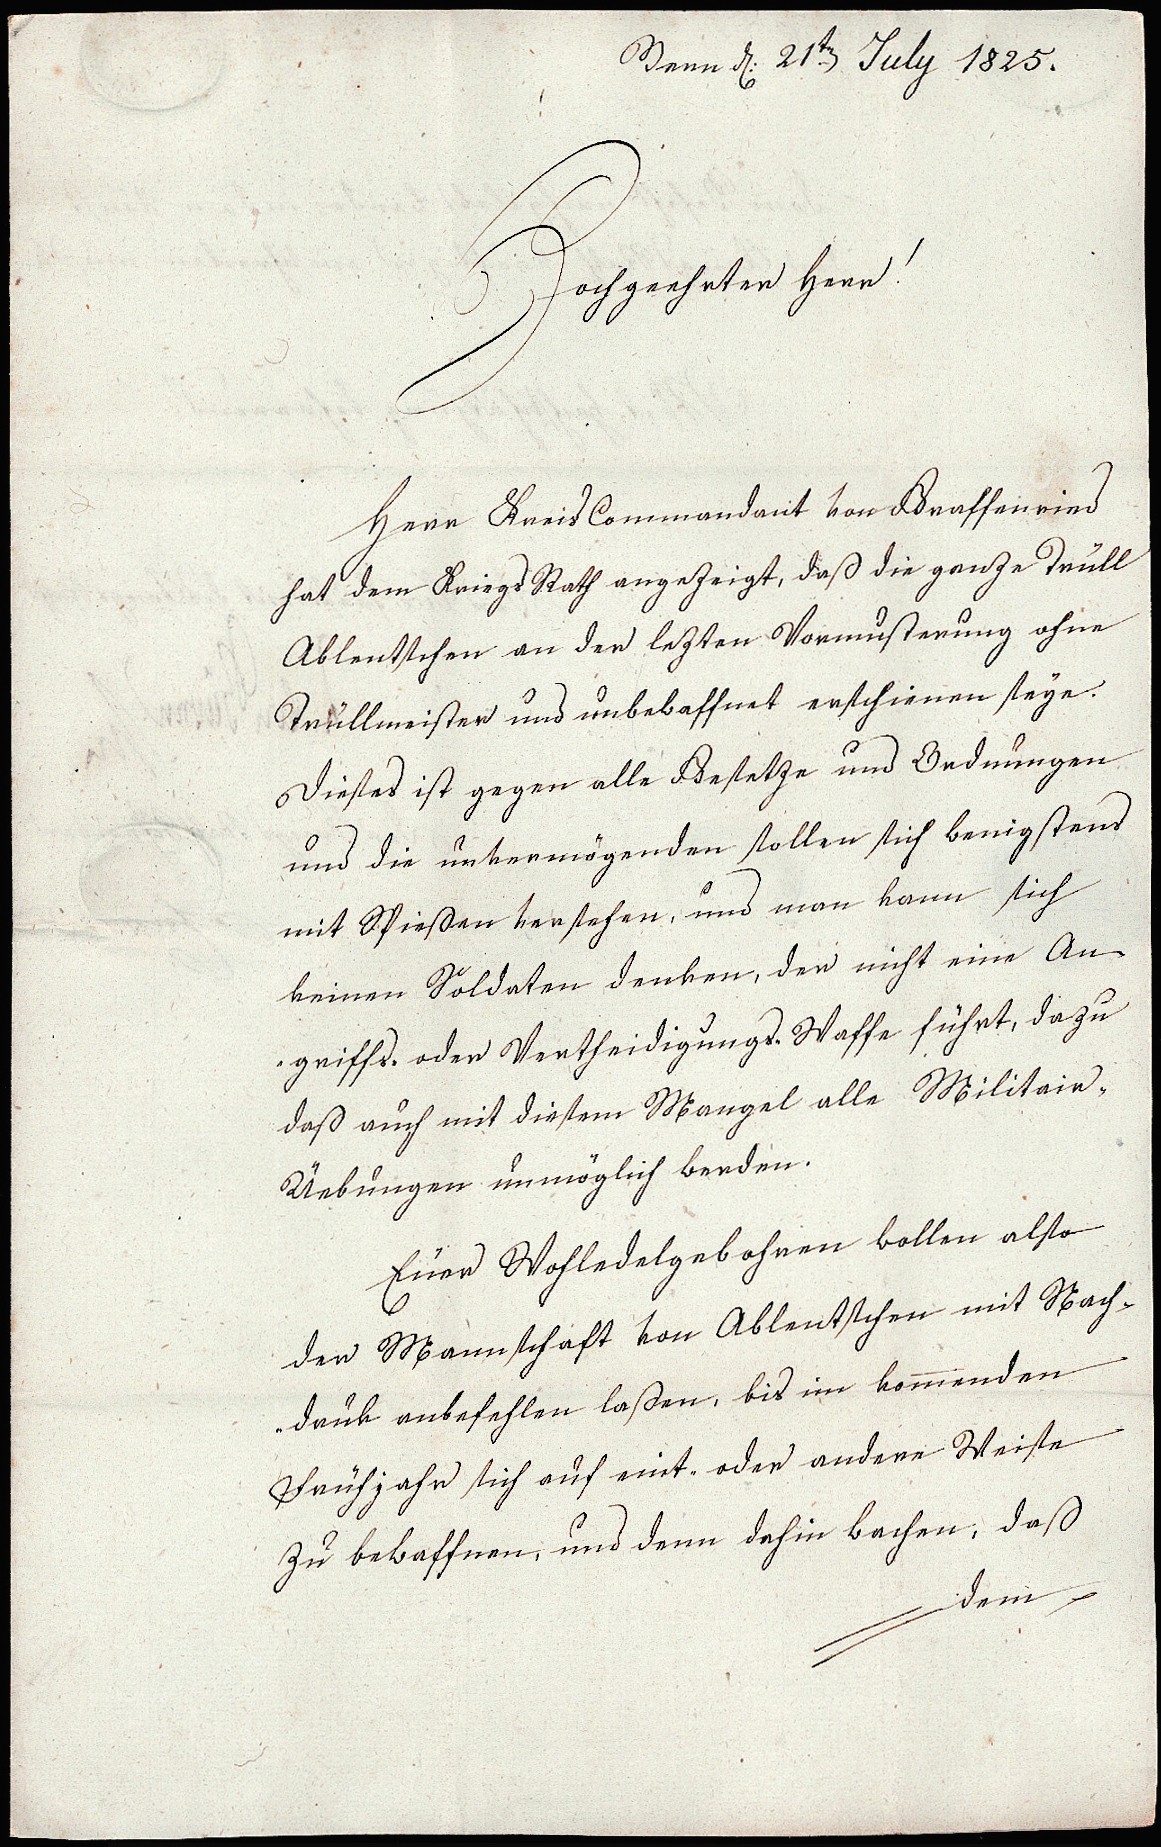 Bern d: 21ten July 1825.
Hochgeehrter Herr!
Herr KreisCommandant von Graffenried
hat dem KriegsRath angezeigt, daß die ganze Trüll
Ablentschen an der lezten Vormusterung ohne
Trüllmeister und unbewaffnet erschienen seye.
Dieses ist gegen alle Gesetze und Ordnungen
und die unvermögenden sollen sich wenigstens
mit Spießen versehen, und man kann sich
keinen Soldaten denken, der nicht eine An-
-griffs- oder Vertheidigungs-Waffe führt, dazu
daß auch mit diesem Mangel alle Militair-
Uebungen unmöglich werden.
Euer Wohledelgebohren wollen also
der Mannschaft von Ablentschen mit Nach-
-druk anbefehlen laßen, bis im kom̅enden
Frühjahr sich auf eint- oder andere Weise
zu bewaffnen, und denn dahin wachen, daß
dem